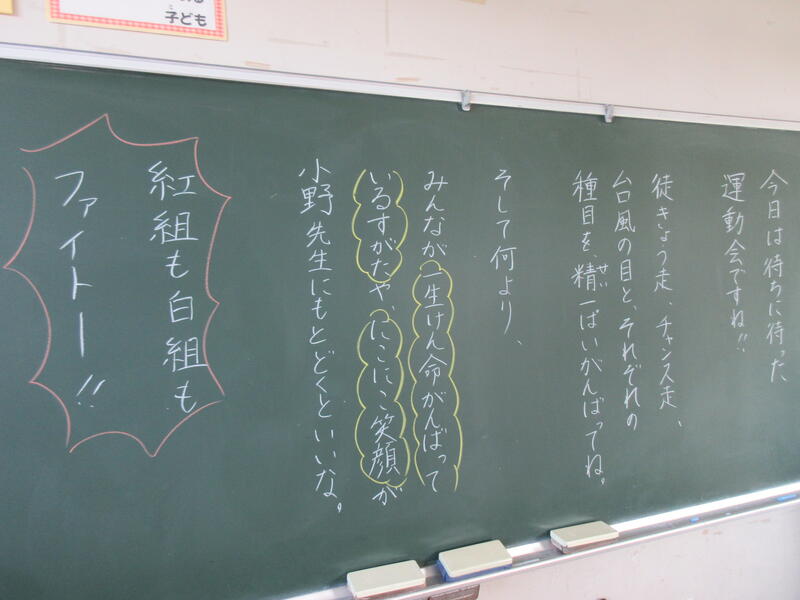 子ども
今日は待ちに待った
運動会ですね!!
徒きょう走、チャンス走、
台風の目と、それぞれの
種目を、精一ぱいがんばってね。
せい
そして何より、
みんなが一生けん命がんばって
いるすがたや、にこにこ笑顔が
小野先生にもとどくといいな。
紅組も白組も
ファイトー!!